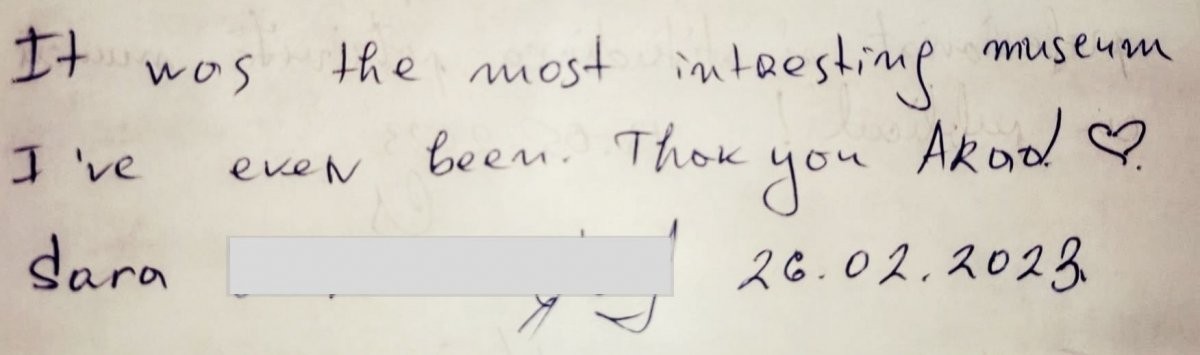 It was the most intresting museum
I've even been. Thok you Arad ♡.
Sara 26.02.2023.